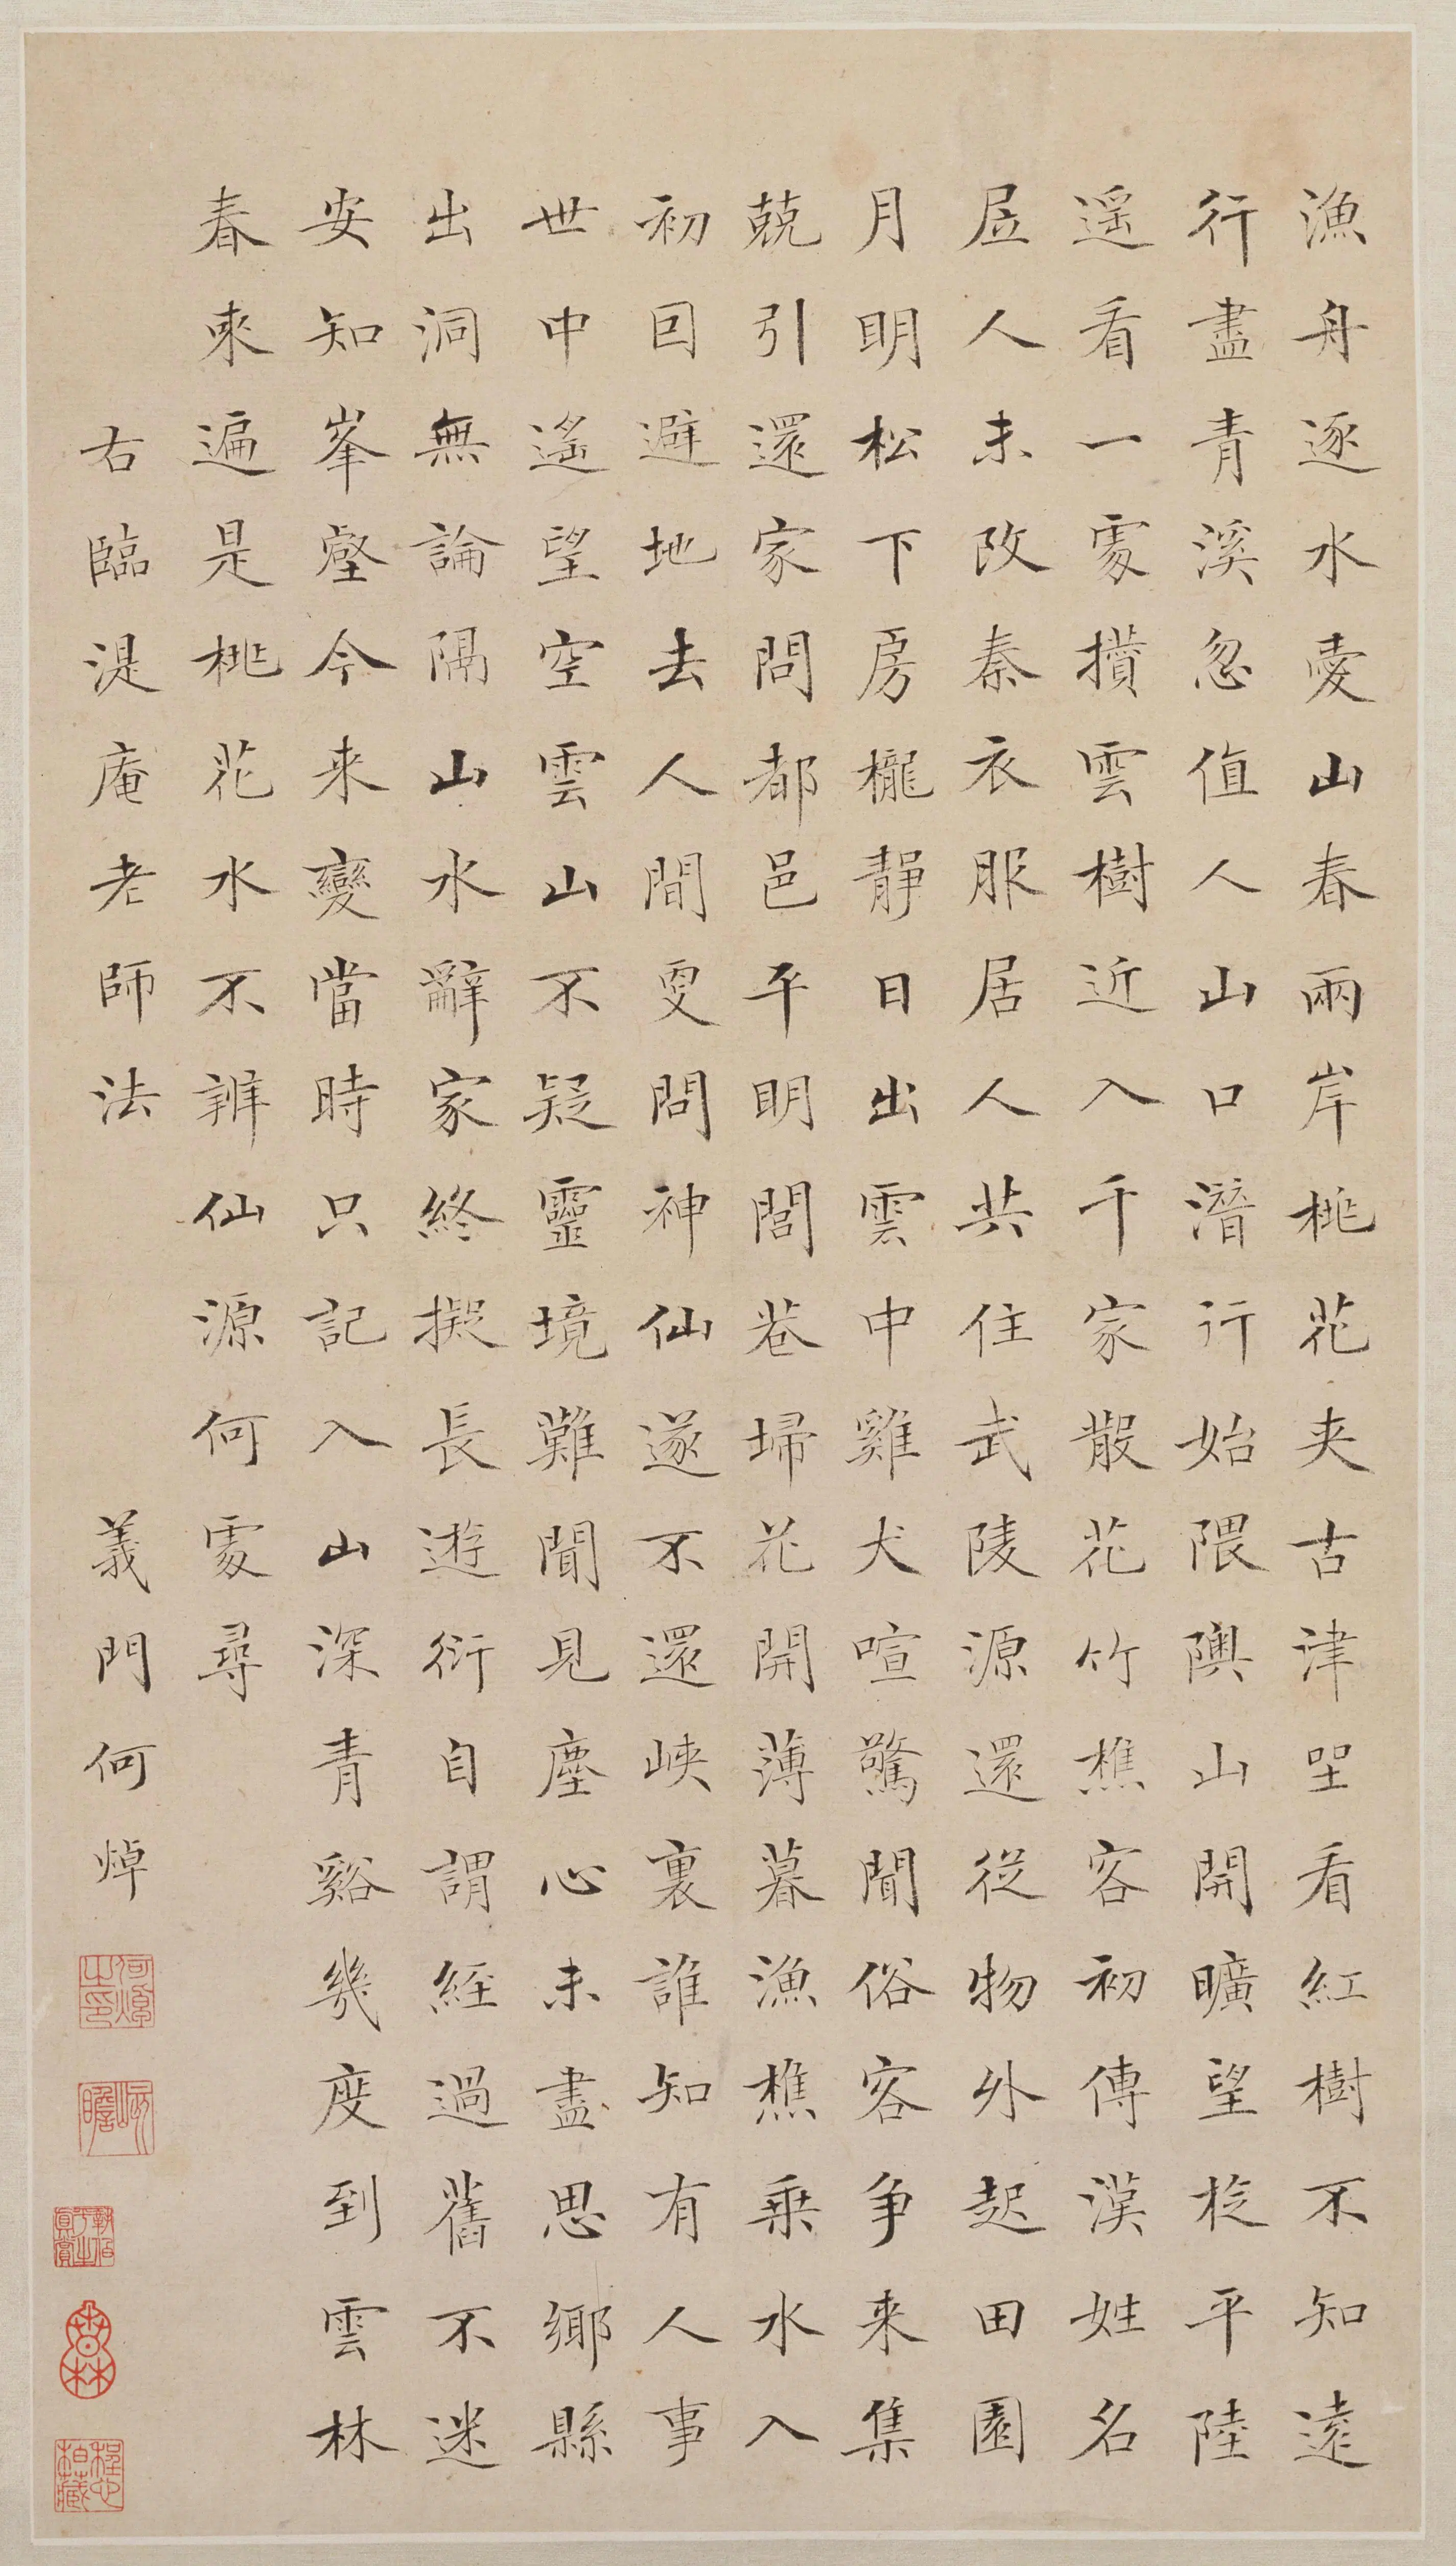 漁舟逐水愛山春兩岸桃花夾古津坐看紅樹不知遠
行盡青溪忽值人山口潛行始隈隩山開曠望旋平陸
遥看一處攢雲樹近入千家散花竹樵客初傳漢姓名
居人未改秦衣服居人共住武陵源還從物外起田園
月明松下房櫳靜日出雲中雞犬喧驚聞俗客争来集
兢引還家問都邑平明閭巷埽花開薄暮漁樵乗水入
初回避地去人間更問神仙遂不還峽裏誰知有人事
世中遥望空雲山不疑靈境難聞見塵心未盡思鄉縣
出洞無論隔山水辭家終擬長遊衍自謂經過舊不迷
安知峯壑今来變當時只記入山深青谿幾度到雲林
春來遍是桃花水不辨仙源何處尋
右臨湜庵老師法 義門何焯
何焯之印
屺瞻
香林
程心柏藏